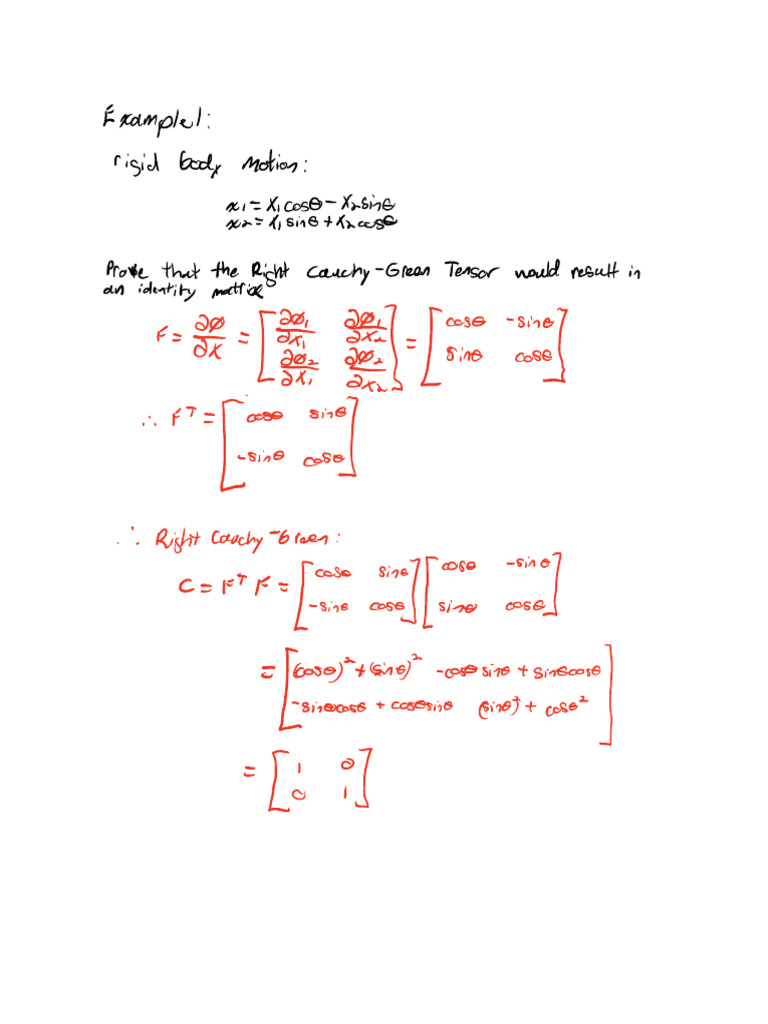 Example 1:
rigid body motion:
x₁ = X₁cosθ − X₂sinθ
x₂ = X₁sinθ + X₂cosθ
Prove that the Right Cauchy-Green Tensor would result in
an identity matrix
F = ∂Ø/∂X = [∂Ø₁/∂X₁ ∂Ø₁/∂X₂; ∂Ø₂/∂X₁ ∂Ø₂/∂X₂] = [cosθ -sinθ; sinθ cosθ]
∴ Fᵀ = [cosθ sinθ; -sinθ cosθ]
∴ Right Cauchy-Green:
C = Fᵀ F = [cosθ sinθ; -sinθ cosθ] [cosθ -sinθ; sinθ cosθ]
= [(cosθ)² + (sinθ)² -cosθsinθ + sinθcosθ; -sinθcosθ + cosθsinθ (sinθ)² + cosθ²]
= [1 0; 0 1]